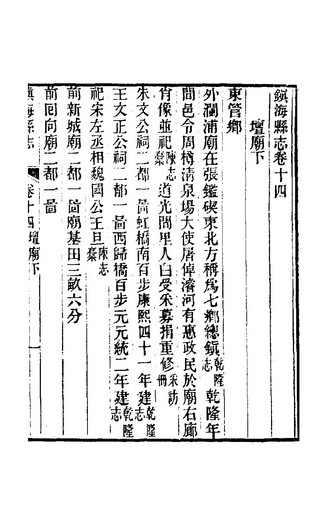 鎮海縣志卷十四
壇廟下
東管鄉
外瀾浦廟在張鑑碶東北方稱為七鄉總鎮乾隆志乾隆年
間邑令周樽清泉場大使屠倬濬河有惠政民於廟右廊
肖像並祀陳志稾道光間里人白受采募捐重修采訪冊
朱文公祠二都一啚虹橋南百步康熙四十一年建乾隆志
王文正公祠二都一啚西歸橋百步元元統二年建乾隆志
祀宋左丞相魏國公王旦陳志稾
前新城廟二都一啚廟基田三畝六分
前囘向廟二都一啚
鎮海縣志
卷十四壇廟下
一